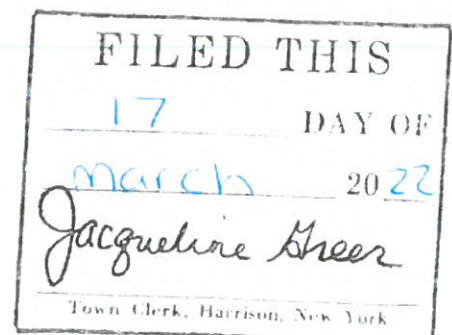 FILED THIS
17 DAY OF
March 2022
Jacqueline Greer
Town Clerk, Harrison, New York